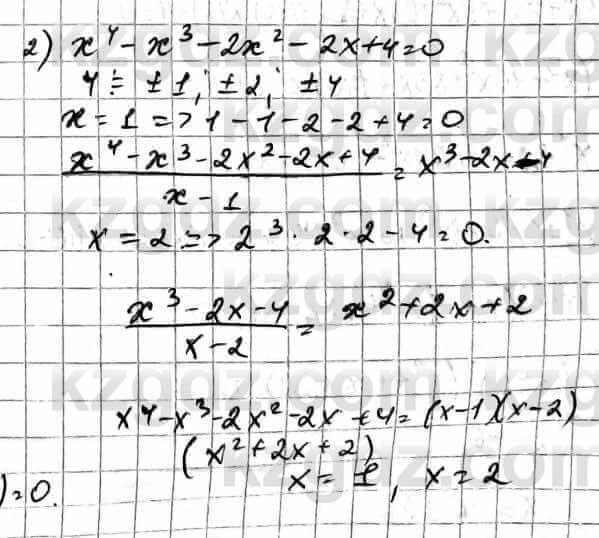 2) x⁴ - x³ - 2x² - 2x + 4 = 0
4 ÷ ±1; ±2; ±4
x = 1 => 1 - 1 - 2 - 2 + 4 = 0
x⁴ - x³ - 2x² - 2x + 4 / x - 1 = x³ - 2x - 4
x = 2 => 2³ · 2 · 2 - 4 = 0.
x³ - 2x - 4 / x - 2 = x² + 2x + 2
x⁴ - x³ - 2x² - 2x + 4 = (x-1)(x-2)
(x² + 2x + 2)
x = 1, x = 2
) = 0.
kzgdz.com